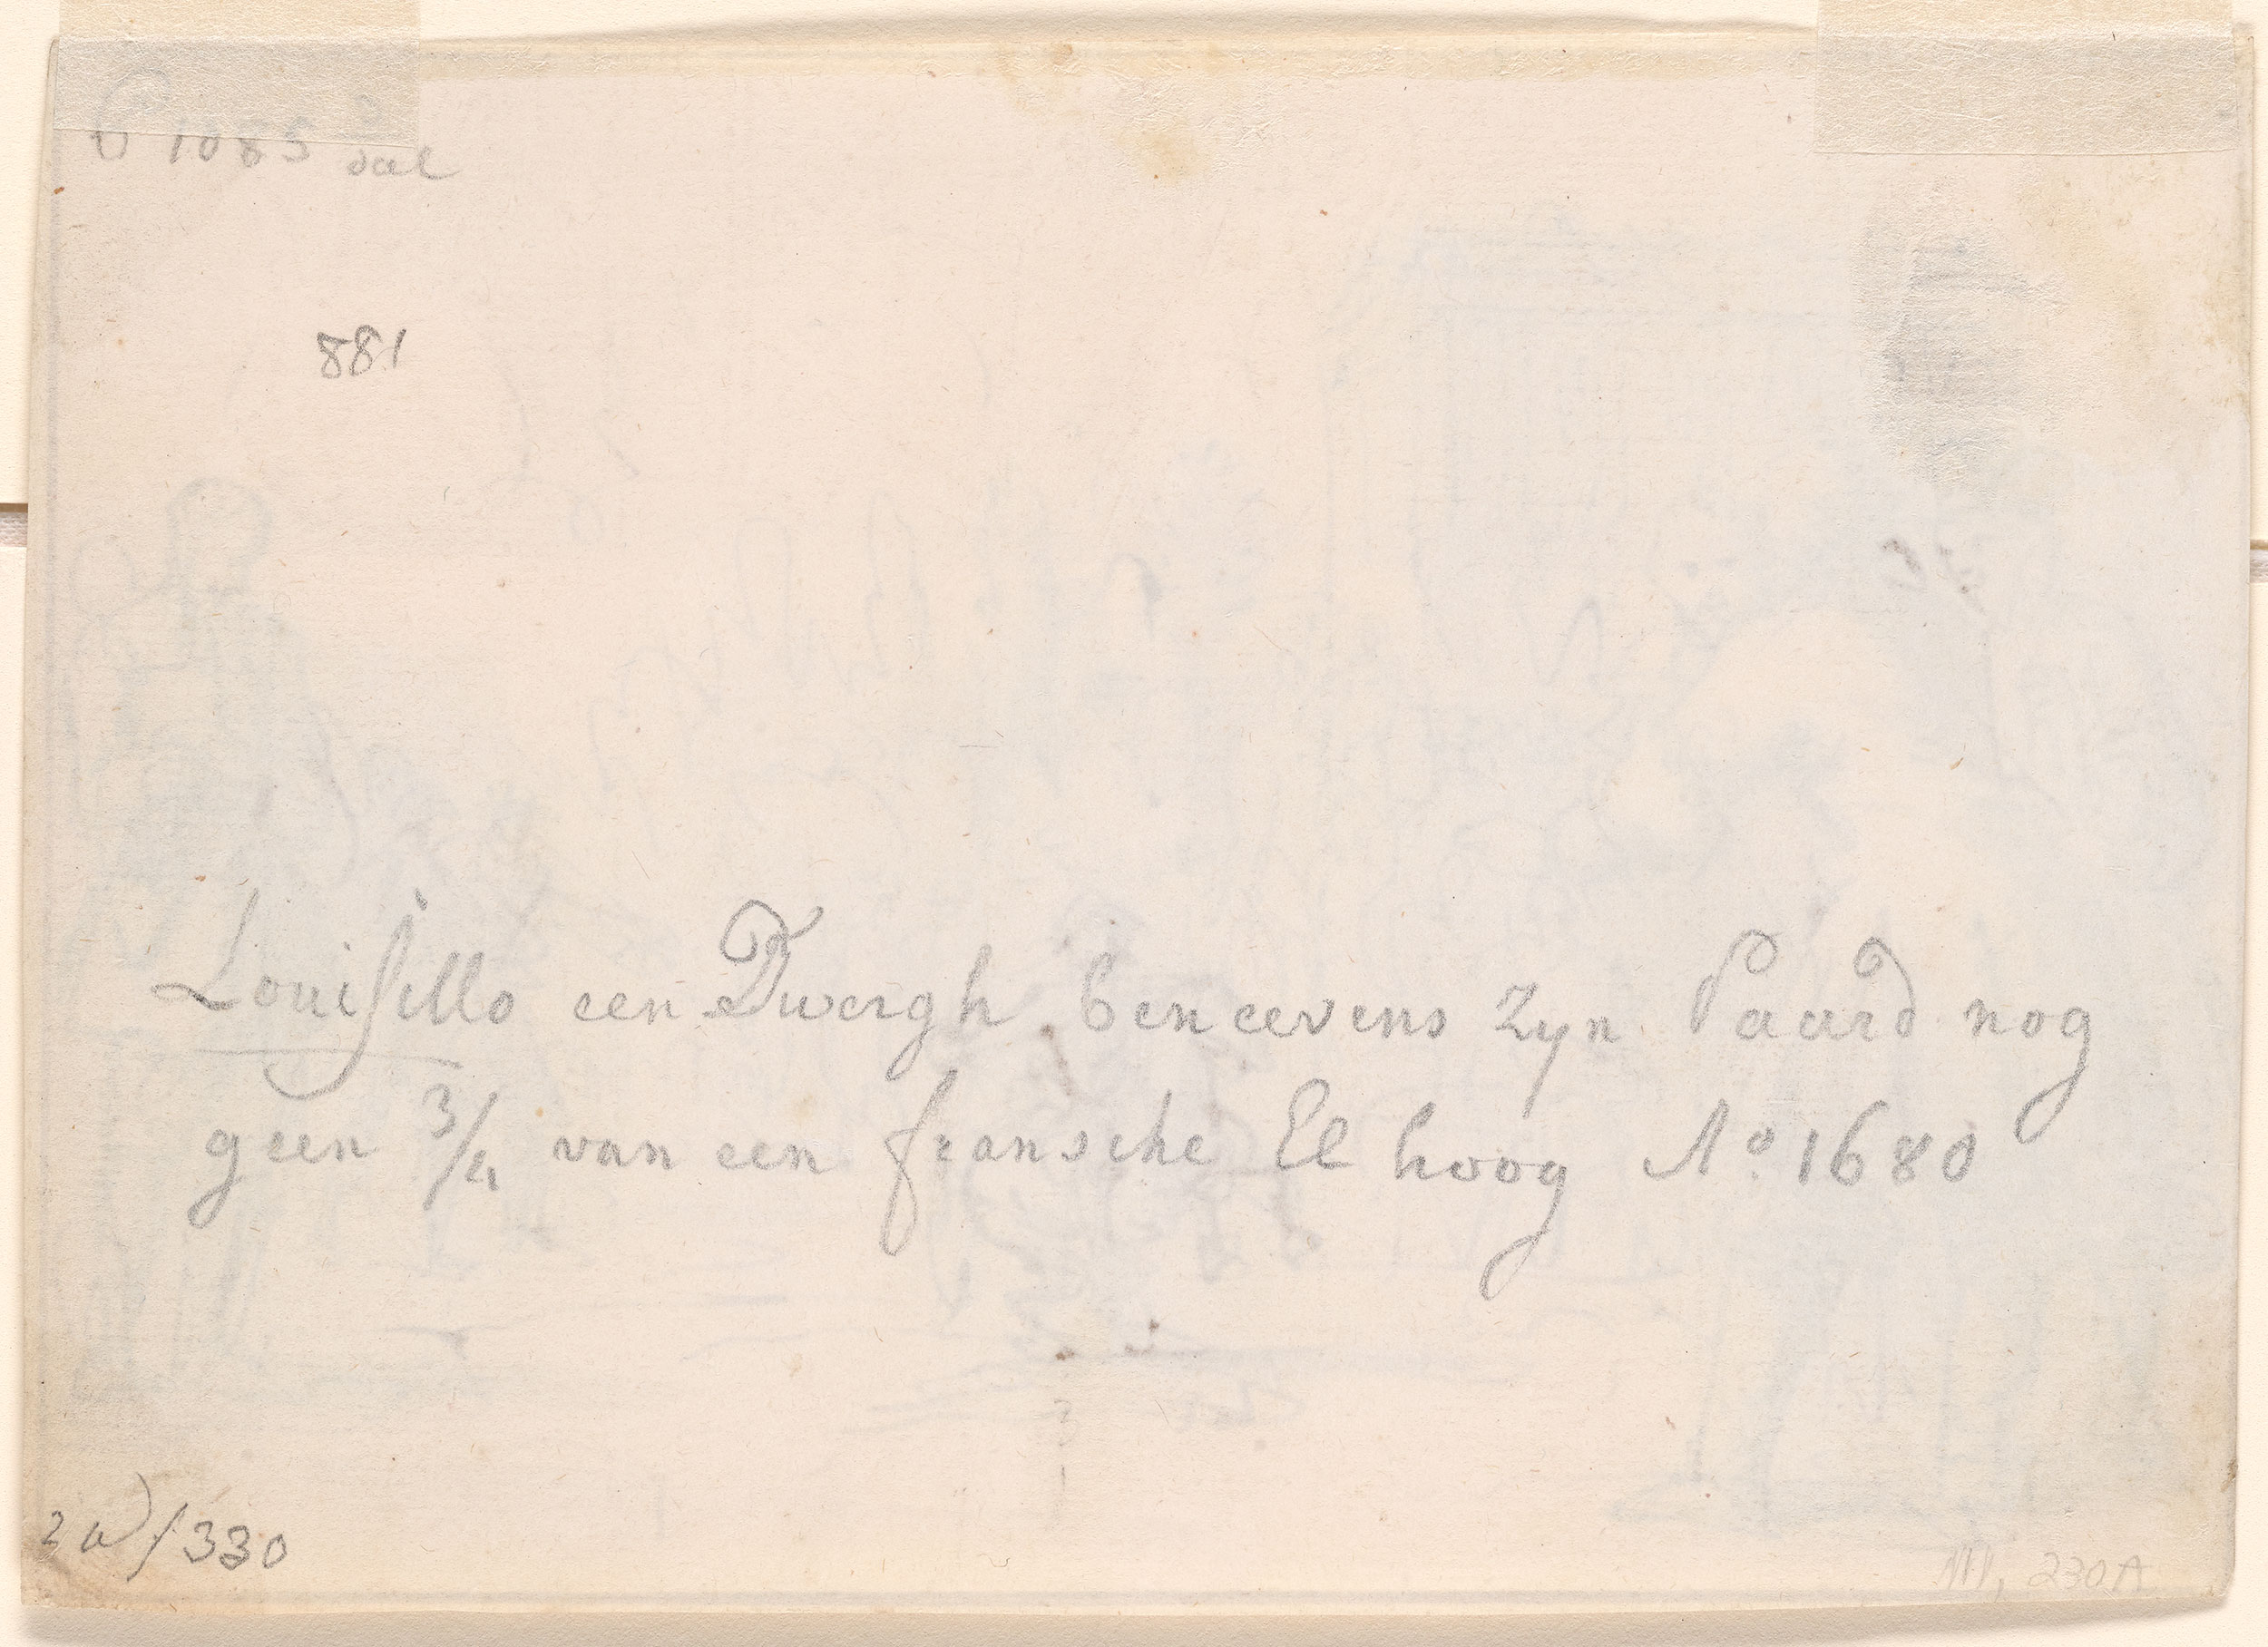 1085 val
881
Louisillo een Dwergh beneevens zyn Paard nog
geen 3/4 van een fransche El hoog Ao 1680
330
III, 230A